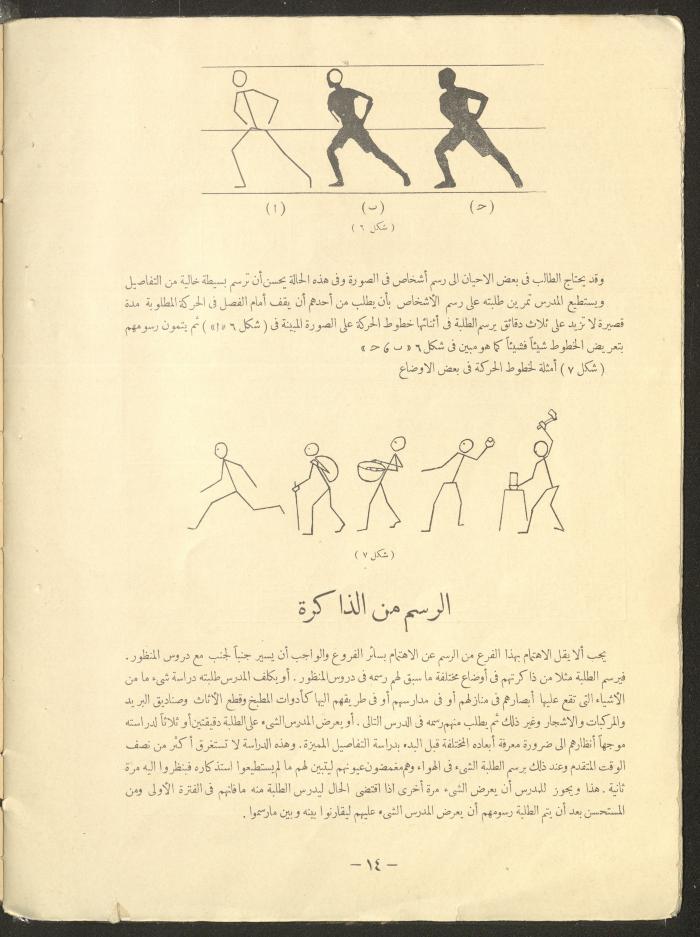 (ا) (ب) (ح)
( شكل ٦ )
وقد يحتاج الطالب فى بعض الاحيان الى رسم أشخاص فى الصورة وفى هذه الحالة يحسن أن ترسم بسيطة خالية من التفاصيل
ويستطيع المدرس تمرين طلبته على رسم الاشخاص بأن يطلب من أحدهم أن يقف أمام الفصل فى الحركة المطلوبة مدة
قصيرة لا تزيد على ثلاث دقائق يرسم الطلبة فى أثنائها خطوط الحركة على الصورة المبينة فى ( شكل ٦ «ا» ) ثم يتمون رسومهم
بتعريض الخطوط شيئاً فشيئاً كما هو مبين فى شكل ٦ « ب ، ح »
( شكل ٧ ) أمثلة لخطوط الحركة فى بعض الاوضاع
( شكل ٧ )
الرسم من الذاكرة
يجب ألا يقل الاهتمام بهذا الفرع من الرسم عن الاهتمام بسائر الفروع والواجب أن يسير جنباً لجنب مع دروس المنظور .
فيرسم الطلبة مثلا من ذاكرتهم فى أوضاع مختلفة ما سبق لهم رسمه فى دروس المنظور . أو يكلف المدرس طلبته دراسة شىء ما من
الأشياء التى تقع عليها أبصارهم فى منازلهم أو فى مدارسهم أو فى طريقهم اليها كأدوات المطبخ وقطع الأثاث وصناديق البريد
والمركبات والاشجار وغير ذلك ثم يطلب منهم رسمه فى الدرس التالى . أو يعرض المدرس الشىء على الطلبة دقيقتين أو ثلاثاً لدراسته
موجهاً أنظارهم الى ضرورة معرفة أبعاده المختلفة قبل البدء بدراسة التفاصيل المميزة . وهذه الدراسة لا تستغرق أكثر من نصف
الوقت المتقدم وعند ذلك يرسم الطلبة الشىء فى الهواء وهم مغمضون عيونهم ليتبين لهم ما لم يستطيعوا استذكاره فينظروا اليه مرة
ثانية . هذا ويجوز للمدرس أن يعرض الشىء مرة أخرى اذا اقتضى الحال ليدرس الطلبة منه ما فاتهم فى الفترة الأولى ومن
المستحسن بعد أن يتم الطلبة رسومهم أن يعرض المدرس الشىء عليهم ليقارنوا بينه وبين ما رسموا .
— ١٤ —